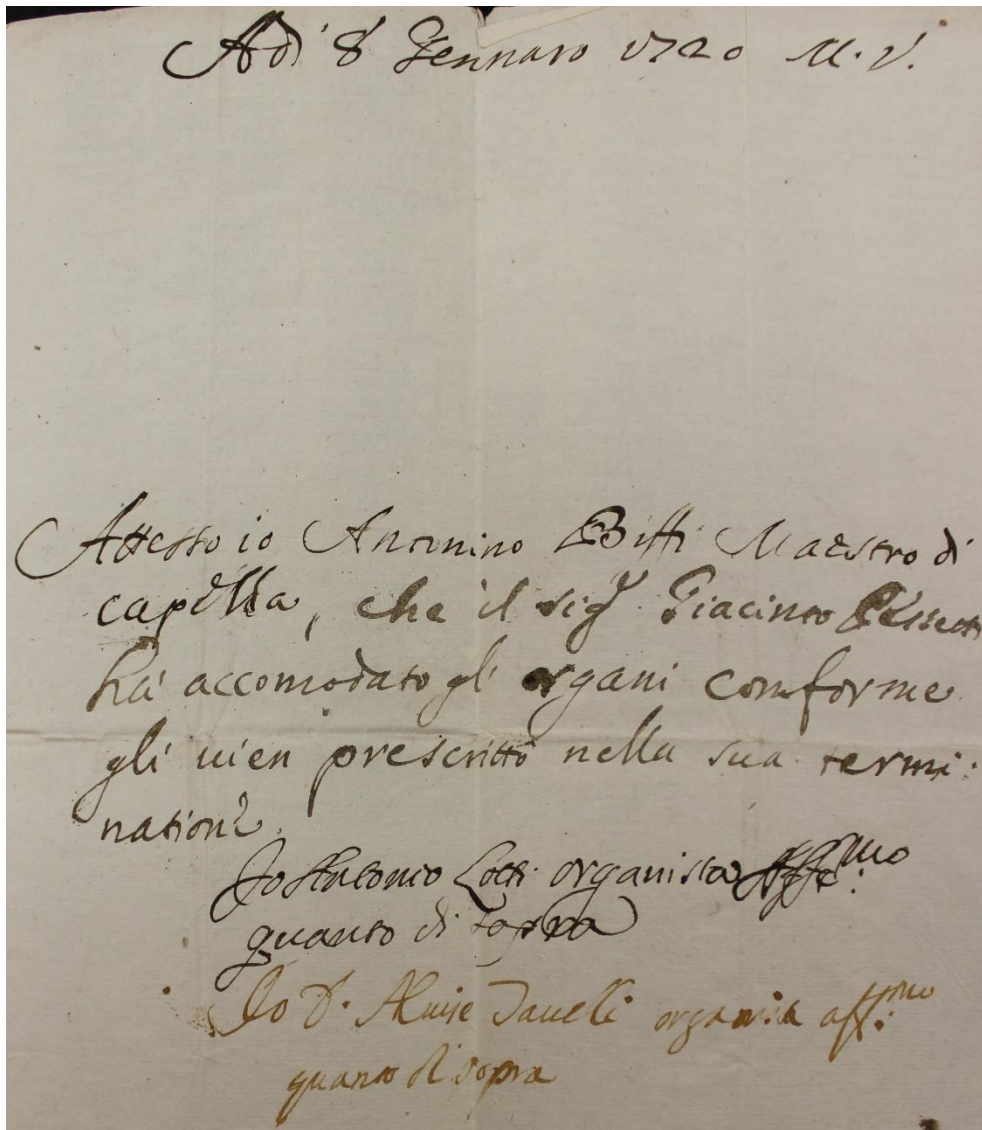 Adi 8 Gennaro 1720 M. V.
Attesto io Antonino Biffi Maestro di
capella, che il sigr Giacinto Pessotti
hà accomodato gl' organi comforme
gli uien prescritto nella sua termi:
natione
Io Antonio Lotti organista affmo:
quanto di sopra
Io D. Aluise Tauelli organista affmo:
quanto di sopra